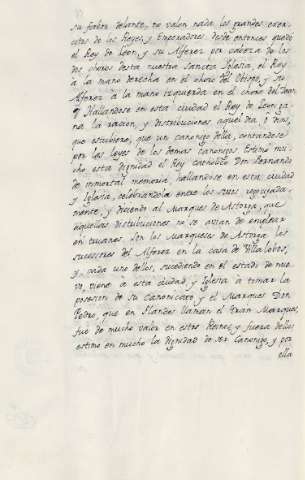 su fabor delante, no valen nada los grandes exer-
citos de los Reyes, y Emperadores desde entonces quedó
el Rey de Leon, y su Alferez por cabeza de los
dos choros desta nuestra Sancta Iglesia, el Rey
à la mano derecha en el choro del Obispo, y su
Alferez à la mano izquierda en el choro del Dean,
y Hallandose en esta ciudad el Rey de Leon ga-
na la racion, y distribuciones aquel dia, y vino,
que estubiere, que un canonigo della, contandose
por las leyes de los demas Canonigos. Estimo mu-
cho esta dignidad el Rey catholico Don Fernando
de immortal memoria, hallandose en esta ciudad
y Iglesia, celebrandola entre los suyos
mente, y diciendo al Marques de Astorga, que
aquellas distribuciones no se avian de emplear
en truanes. Son los Marqueses de Astorga los
sucesores del Alferez en la casa de Villalobos,
y cada uno dellos, sucediendo en el estado de nue-
vo, viene a esta ciudad, y Iglesia à tomar la
posesion de su Canonicato, y el Marques Don
Pedro, que en Flandes llaman el Gran Marques,
fué de mucho valor en estos Reinos, y fuera dellos
estimo en mucho la dignidad de ser Canonigo, y por
ella